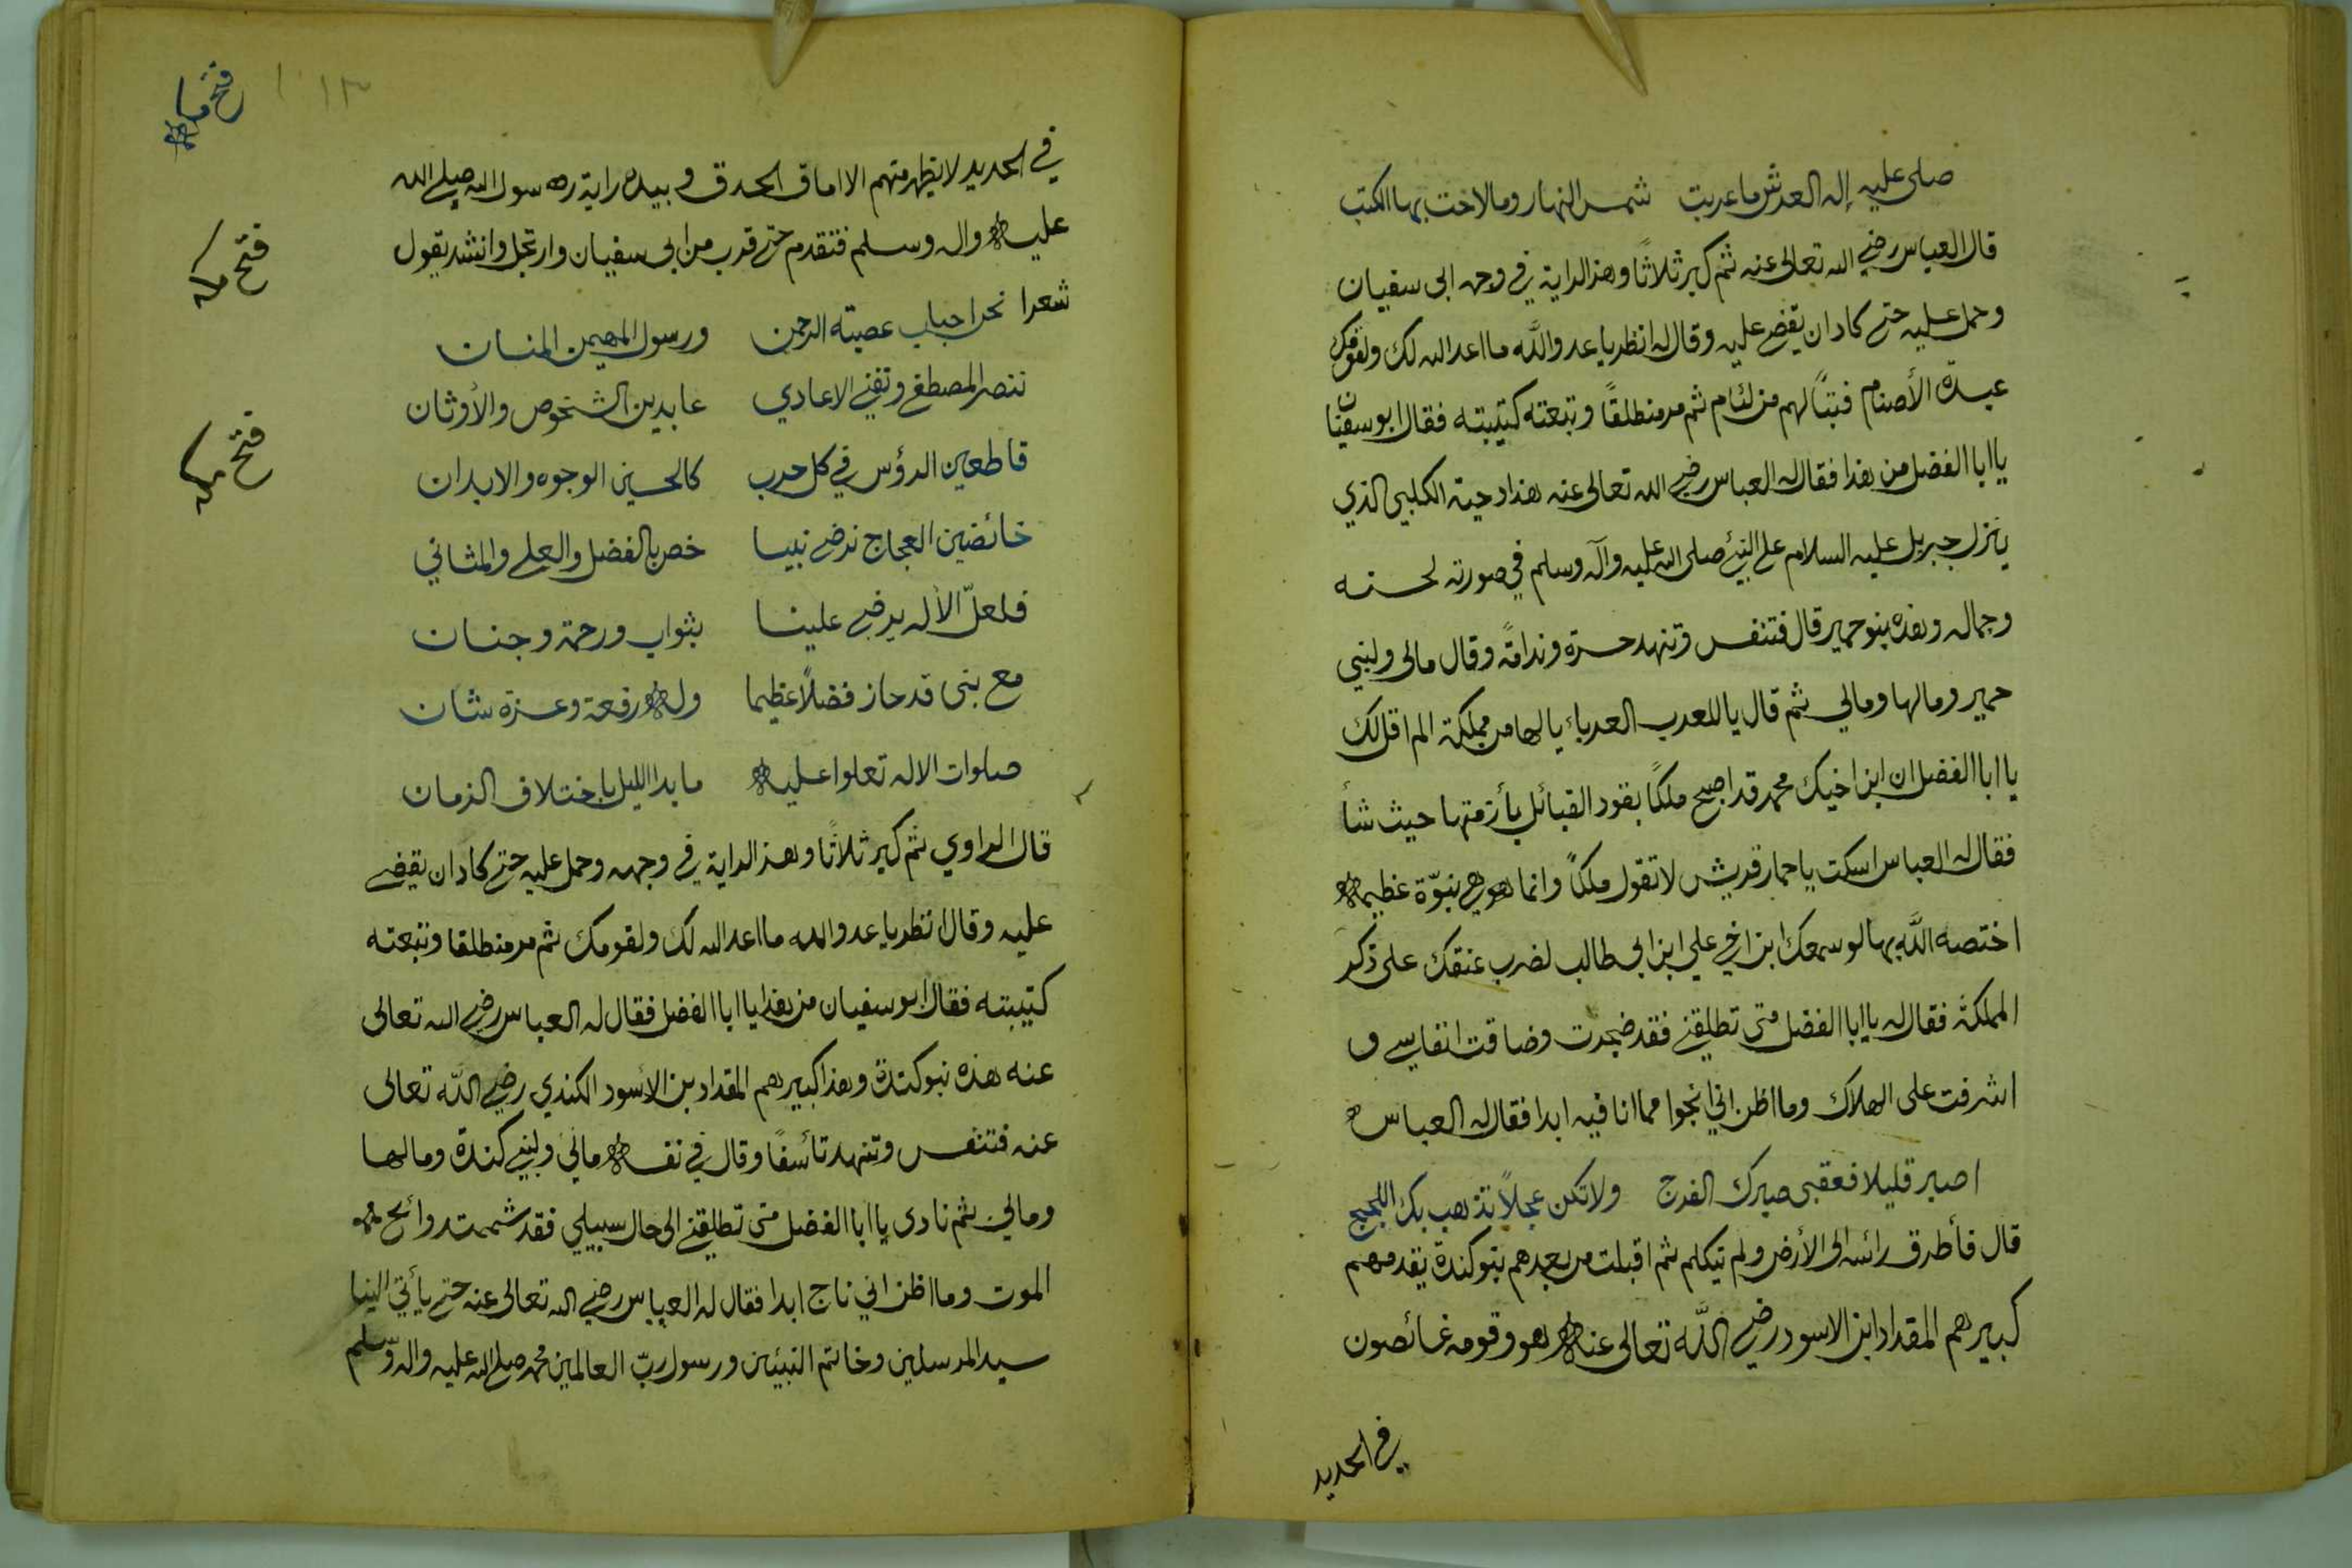 صلى عليه إله العرش ما غربت شمس النهار وما لاخت بها الكتب
قال العباس رضي الله تعالى عنه ثم كبر ثلاثًا وهز الراية في وجه ابي سفيان
وحمل عليه حتى كاد ان يقضي عليه وقال له انظر يا عدو اللَّه ما اعد الله لك ولقومك
عبدة الأصنام فتبًا لهم من لئام ثم مر منطلقًا وتبعته كتيبته فقال ابو سفيان
يا ابا الفضل من هذا فقال له العباس رضي الله تعالى عنه هذا دحية الكلبي الذي
ينزل جبريل عليه السلام على النبيّ صلى الله عليه وآله وسلم في صورته لحسنه
وجماله وهذه بنو حمير قال فتنفس وتنهد حسرة وندامةً وقال مالي ولبني
حمير ومالها ومالي ثم قال يا للعرب العرباء يا لها من مملكة الم اقل لك
يا ابا الفضل ان ابن اخيك محمد قد اصبح ملكًا يقود القبائل بأزمتها حيث شأ
فقال له العباس اسكت يا حمار قريش لا تقول ملكًا وانما هو هي نبوّة عظيمة
اختصه اللَّه بها لو سمعك ابن اخي علي ابن ابي طالب لضرب عنقك على ذكر
المملكة فقال له يا ابا الفضل متى تطلقني فقد ضجرت وضاقت انفاسي و
اشرفت على الهلاك وما اظن اني انجوا مما انا فيه ابدا فقال له العباس
اصبر قليلا فعقبى صبرك الفرج ولا تكن عجلاً تذهب بك اللجج
قال فأطرق رائسه الى الأرض ولم يتكلم ثم اقبلت من بعدهم بنو كندة يقدمهم
كبيرهم المقداد ابن الاسود رضي اللَّه تعالى عنه هو وقومه غائصون
في الحديد
فتح مكة
فتح مكه
فتح مكه
في الحديد لا يظهر منهم الا اماق الحدق و بيده راية رسول الله صلى الله
عليه واله وسلم فتقدم حتى قرب من ابي سفيان وارتجل وانشد يقول
شعرا نحن احباب عصبته الرحمن ورسول المهيمن المنان
ننصر المصطفى ونفني الاعادي عابدين الشخوص والأوثان
قاطعين الرؤس في كل حرب كالحسين الوجوه والابدان
خائضين العجاج نرضي نبيا خص بالفضل والعلى والمثاني
فلعلّ الأله يرضى علينا بثواب ورحمة وجنان
مع نبي قد حاز فضلاً عظيما وله رفعة وعزة شان
صلوات الاله تعلوا عليه ما بدا الليل باختلاف الزمان
قال الراوي ثم كبر ثلاثًا وهز الراية في وجهه وحمل عليه حتى كاد ان يقضي
عليه وقال انظر يا عدو الله ما اعد الله لك ولقومك ثم مر منطلقا وتبعته
كتيبته فقال ابو سفيان من هذا يا ابا الفضل فقال له العباس رضي الله تعالى
عنه هذه بنو كندة وهذا كبيرهم المقداد بن الاسود الكندي رضي اللَّه تعالى
عنه فتنفس وتنهد تأسفًا وقال في نفسه مالي ولبني كندة ومالها
ومالي ثم نادى يا ابا الفضل متى تطلقني الى حال سبيلي فقد شممت روائح
الموت وما اظن اني ناج ابدا فقال له العباس رضي الله تعالى عنه حتى يأتي الينا
سيد المرسلين وخاتم النبيّين ورسول ربّ العالمين محمد صلى الله عليه واله وسلم